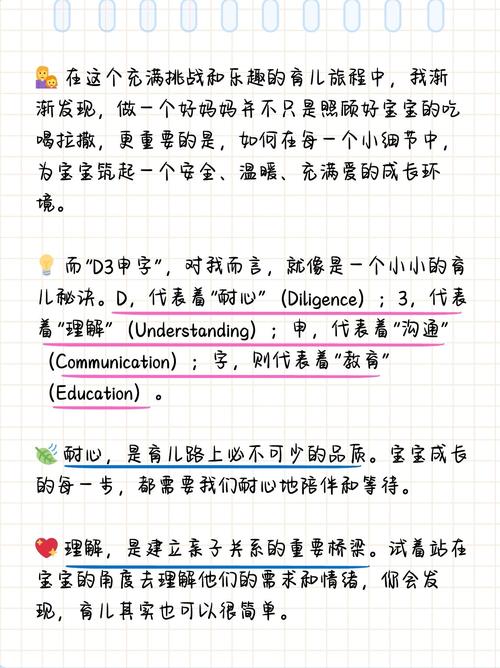 👩‍👧在这个充满挑战和乐趣的育儿旅程中，我渐
渐发现，做一个好妈妈并不只是照顾好宝宝的吃
喝拉撒，更重要的是，如何在每一个小细节中，
为宝宝筑起一个安全、温暖、充满爱的成长环
境。
💡而“D3申字”，对我而言，就像是一个小小的育
儿秘诀。D，代表着“耐心”（Diligence）；3，代表
着“理解”（Understanding）；申，代表着“沟通”
（Communication）；字，则代表着“教育”
（Education）。
🍃耐心，是育儿路上必不可少的品质。宝宝成长
的每一步，都需要我们耐心地陪伴和等待。
💖理解，是建立亲子关系的重要桥梁。试着站在
宝宝的角度去理解他们的需求和情绪，你会发
现，育儿其实也可以很简单。